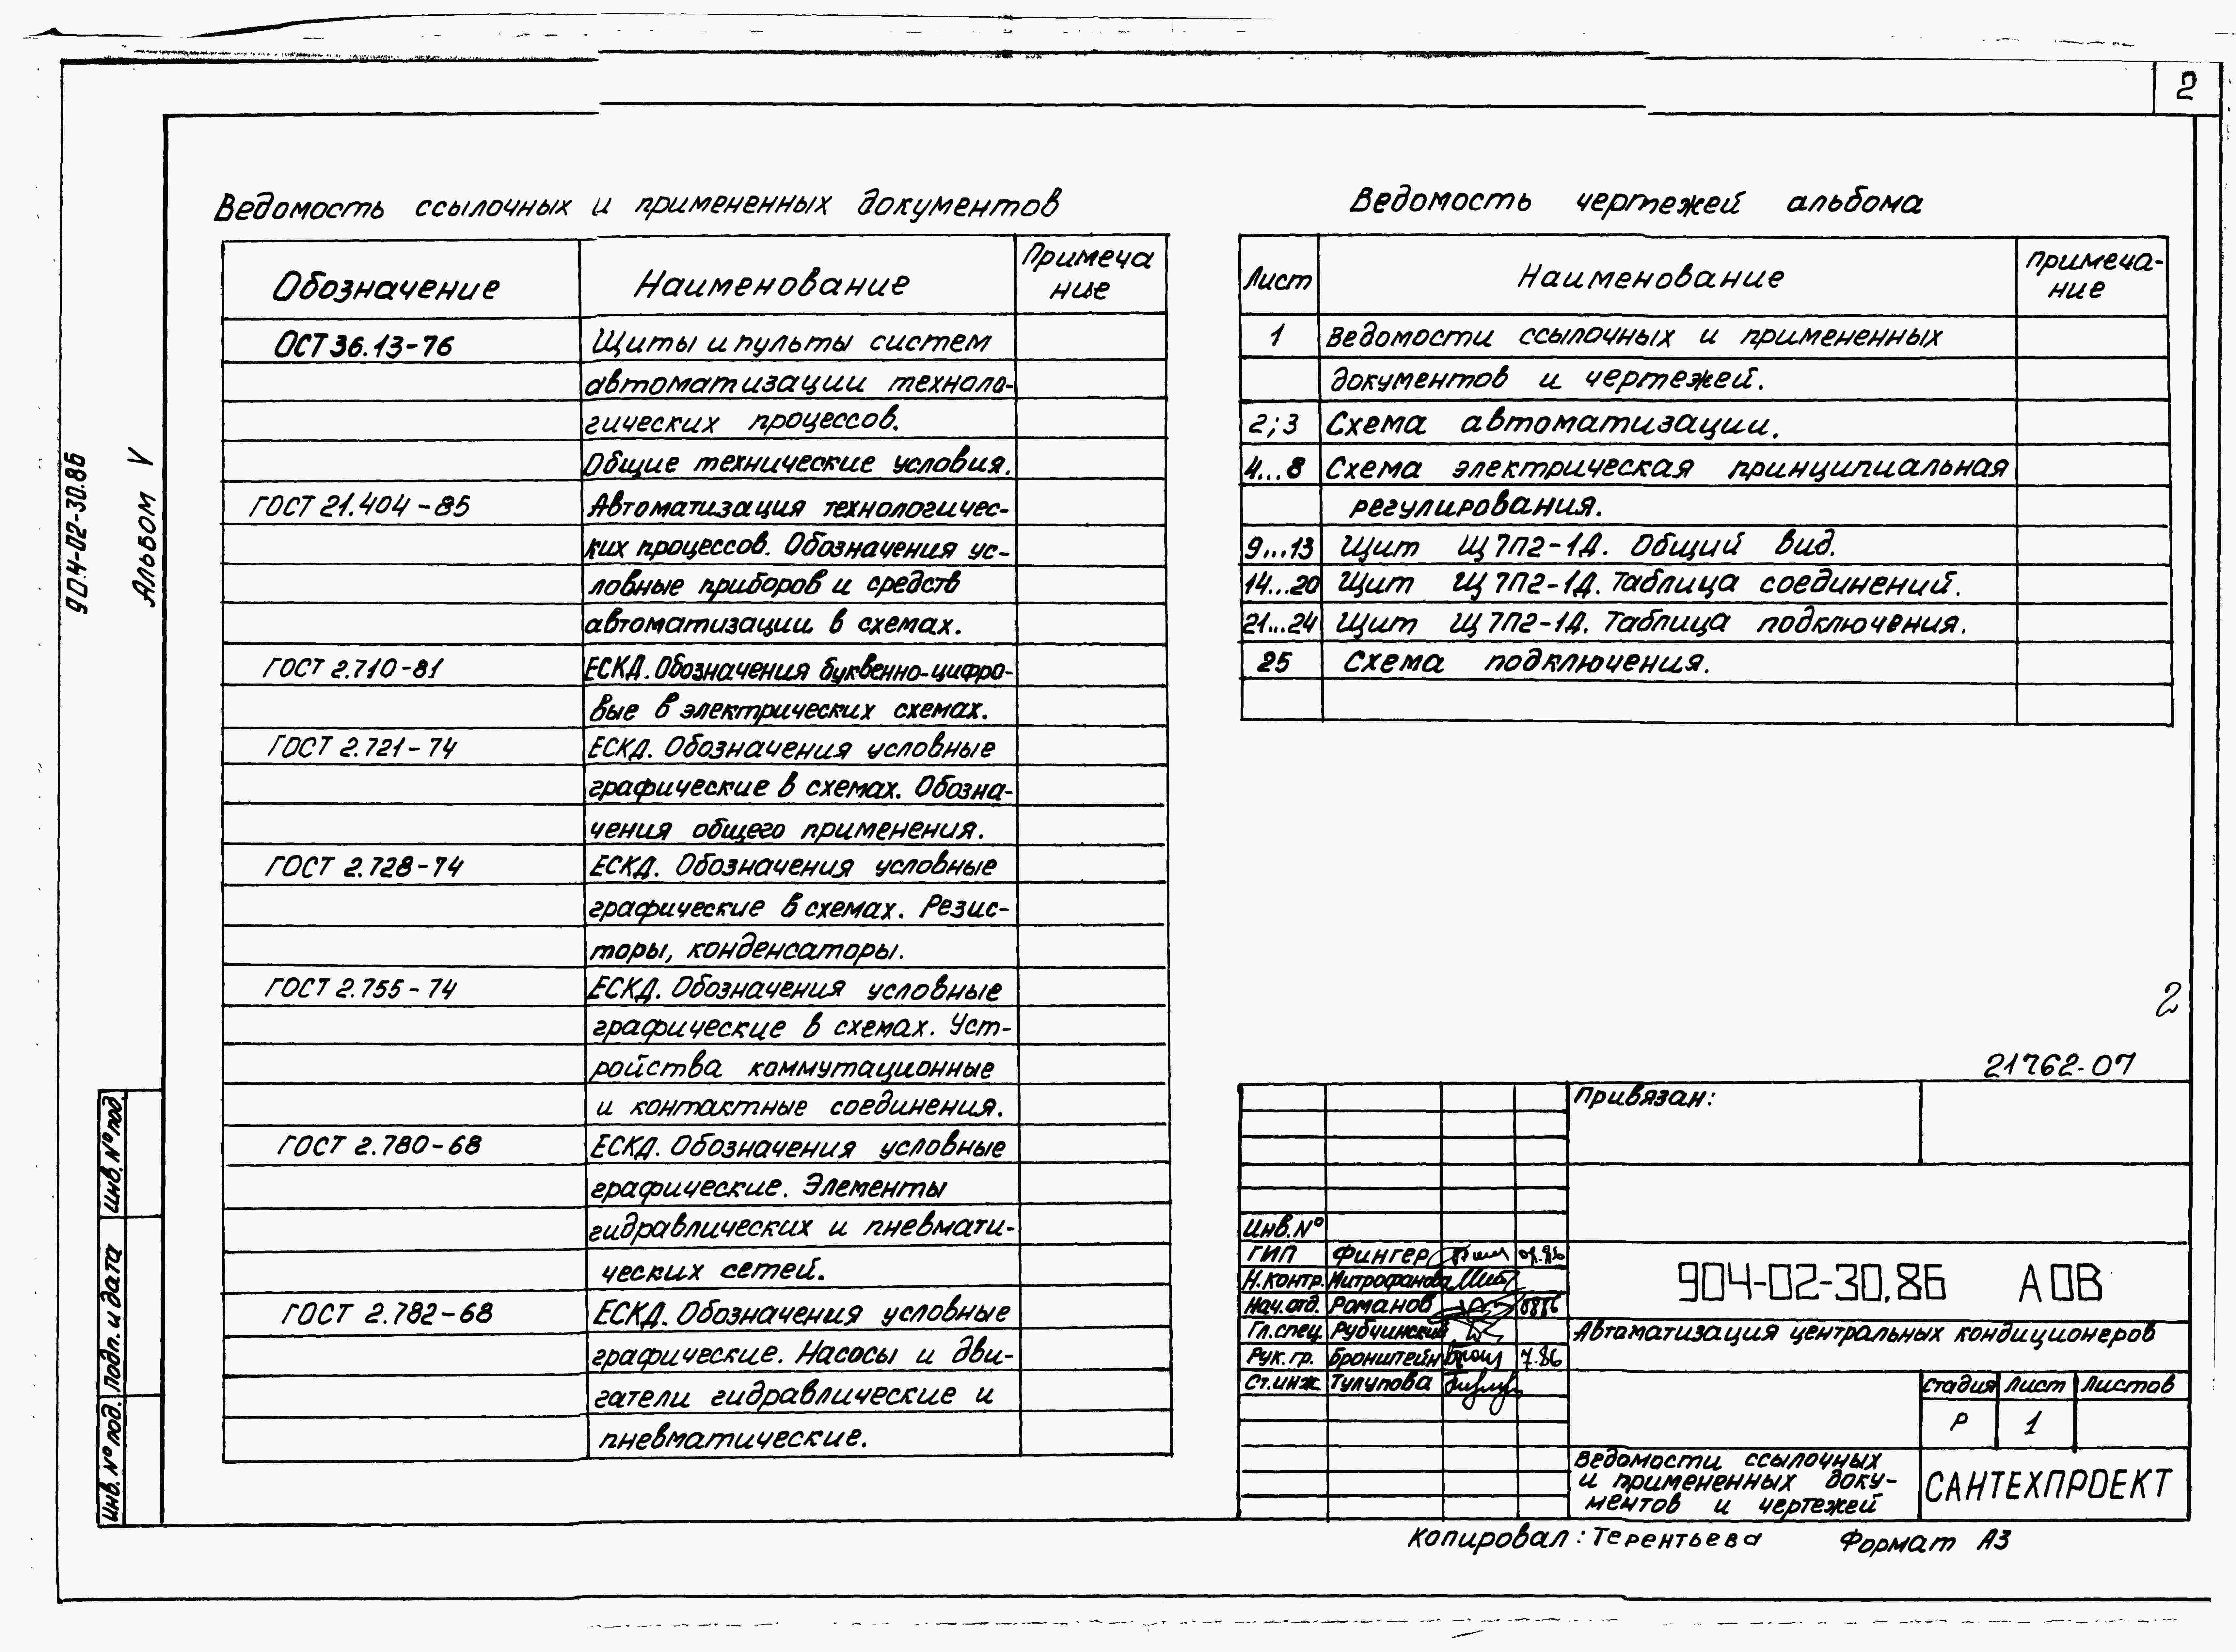 2
904-02-30.86
Альбом V
Ведомость ссылочных и примененных документов
Обозначение Наименование Примеча
ние
ОСТ 36.13-76 Щиты и пульты систем
автоматизации техноло-
гических процессов.
Общие технические условия.
ГОСТ 21.404-85 Автоматизация технологичес-
ких процессов. Обозначения ус-
ловные приборов и средств
автоматизации в схемах.
ГОСТ 2.710-81 ЕСКД. Обозначения буквенно-цифро-
вые в электрических схемах.
ГОСТ 2.721-74 ЕСКД. Обозначения условные
графические в схемах. Обозна-
чения общего применения.
ГОСТ 2.728-74 ЕСКД. Обозначения условные
графические в схемах. Резис-
торы, конденсаторы.
ГОСТ 2.755-74 ЕСКД. Обозначения условные
графические в схемах. Уст-
ройства коммутационные
и контактные соединения.
ГОСТ 2.780-68 ЕСКД. Обозначения условные
графические. Элементы
гидравлических и пневмати-
ческих сетей.
ГОСТ 2.782-68 ЕСКД. Обозначения условные
графические. Насосы и дви-
гатели гидравлические и
пневматические.
Ведомость чертежей альбома
Лист Наименование Примеча-
ние
1 Ведомости ссылочных и примененных
документов и чертежей.
2;3 Схема автоматизации.
4...8 Схема электрическая принципиальная
регулирования.
9...13 Щит Щ7П2-1Д. Общий вид.
14...20 Щит Щ7П2-1Д. Таблица соединений.
21...24 Щит Щ7П2-1Д. Таблица подключения.
25 Схема подключения.
2
21762-07
Привязан:
Инв.№
ГИП Фингер
Н.контр. Митрофанова
Нач.отд. Романов
Гл.спец. Рубчинский
Рук.гр. Бронштейн 7.86
Ст.инж Тулупова
904-02-30.86 АОВ
Автоматизация центральных кондиционеров
Стадия Лист Листов
Р 1
Ведомости ссылочных
и примененных доку-
ментов и чертежей
САНТЕХПРОЕКТ
Копировал: Терентьева Формат А3
Инв.№под.
Подп. и дата
Инв.№под.